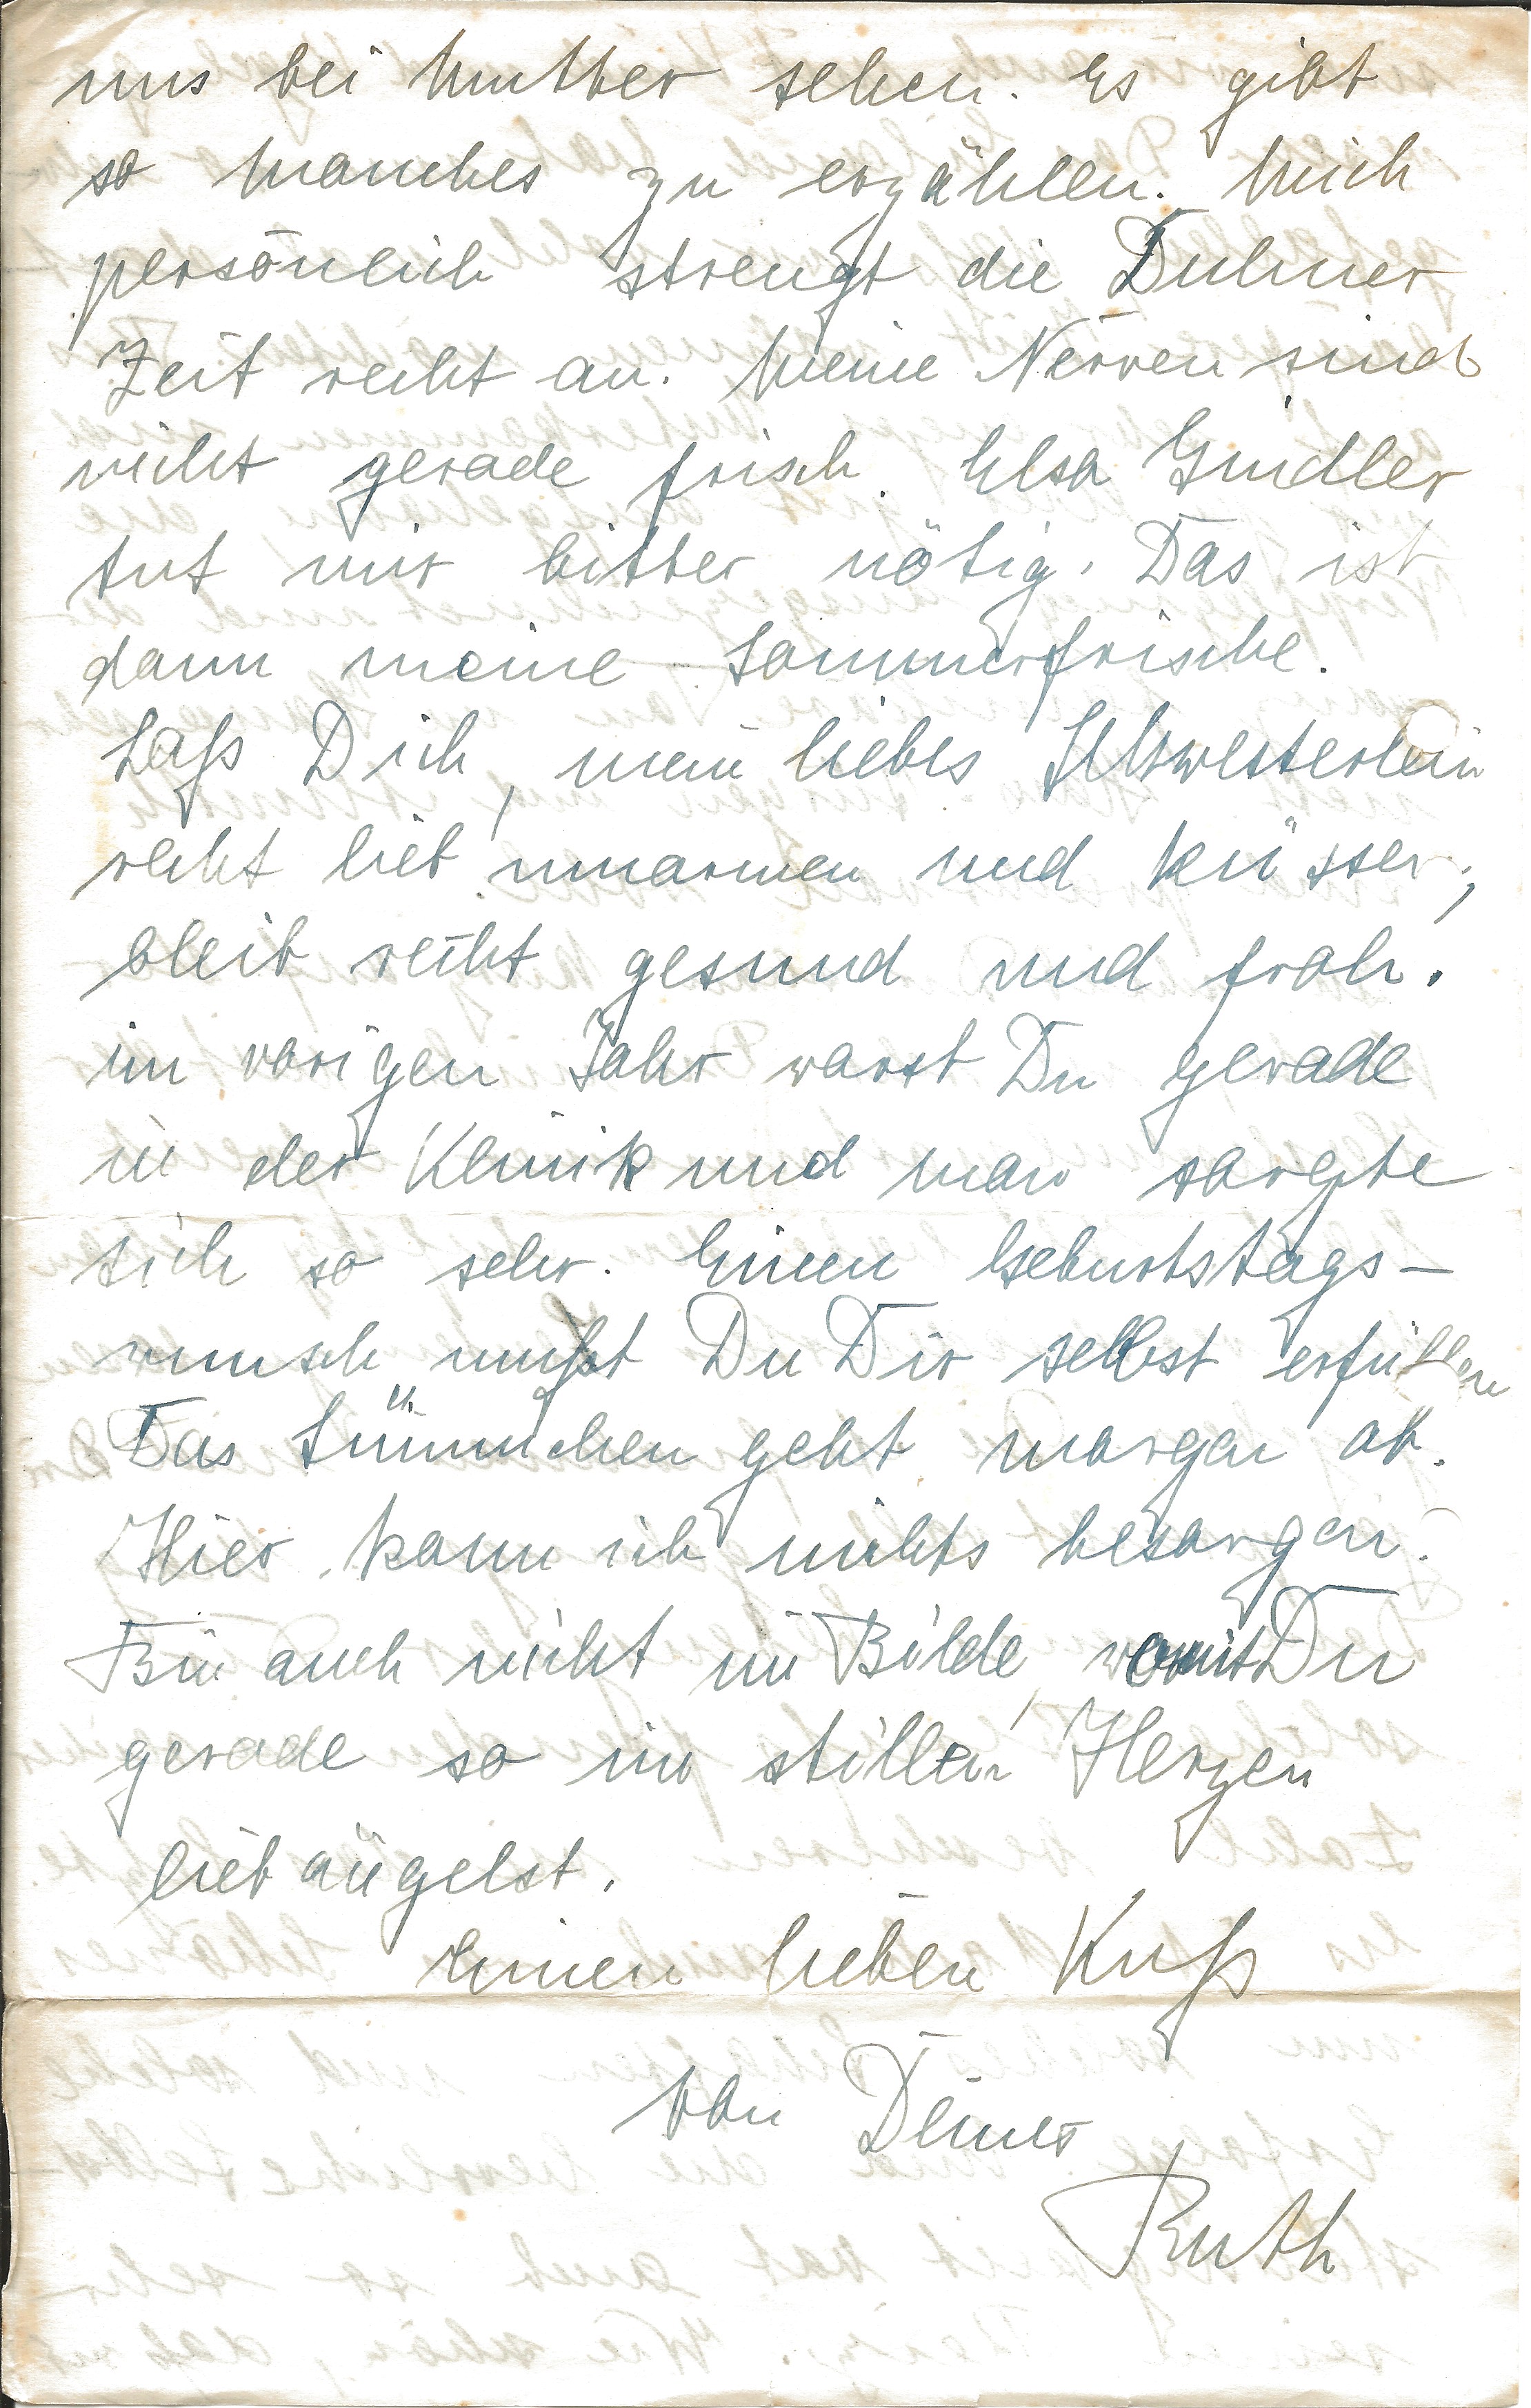 uns bei Mutter sehen. Es gibt
so Manches zu erzählen. Mich
persönlich strengt die Duhner
Zeit recht an. Meine Nerven sind
nicht gerade frisch. Elsa Gindler
tut mir bitter nötig. Das ist
dann meine Sommerfrische.
Laß Dich, mein liebes Schwesterlein
recht lieb umarmen und küssen,
bleib recht gesund und froh.
im vorigen Jahr warst Du gerade
in der Klinik und man sorgte
sich so sehr. Einen Geburtstags-
wunsch mußt Du Dir selbst erfüllen
Das Sümmchen geht morgen ab.
Hier kann ich nichts besorgen.
Bin auch nicht im Bilde, womit Du
gerade so im stillen Herzen
liebäugelst.
Einen lieben Kuß
von Deiner
Ruth